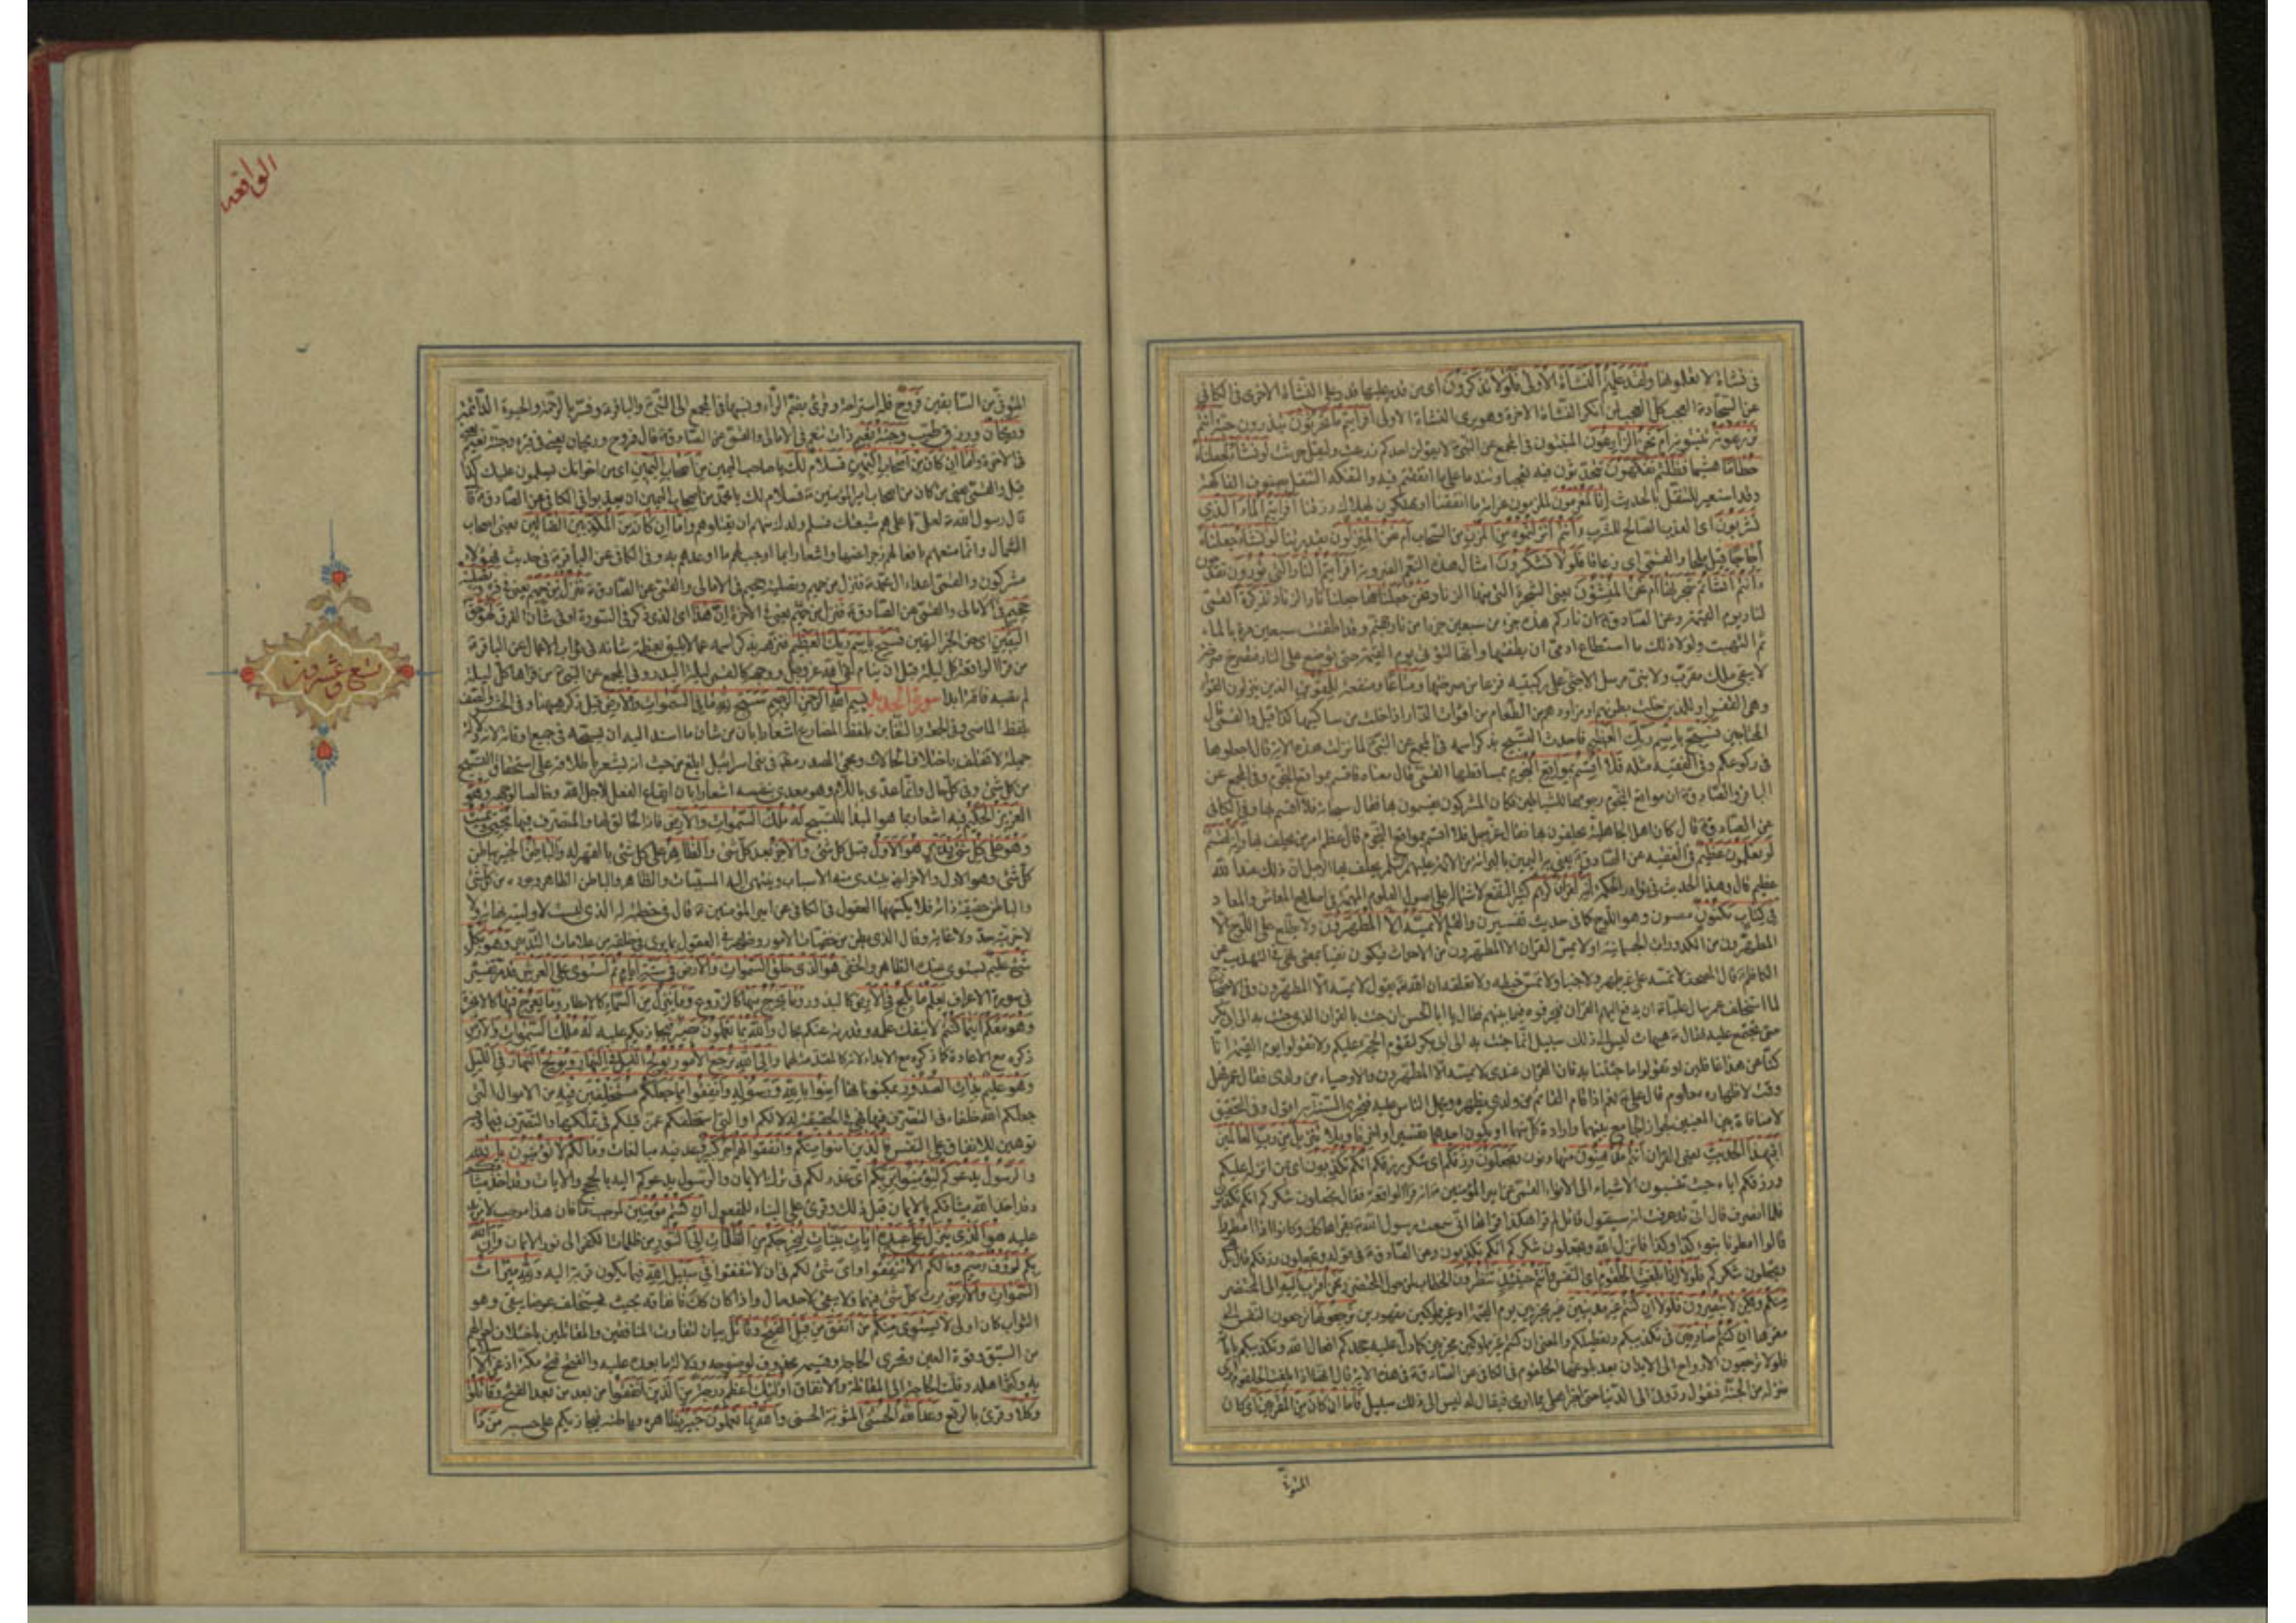 فى نشاة لا تعلمونها ولقد علمتم النشاة الاولى فلولا تذكرون اى من قدر عليها قدر على النشاة الاخرى فى الكافى
عن السجاد العجب كل العجب لمن انكر النشاة الاخرة وهو يرى النشاة الاولى افرايتم ما تحرثون تبذرون حبه ءانتم
تزرعونه تنبتونه ام نحن الزارعون المنبتون فى المجمع عن النبى لا يقولن احدكم زرعت وليقل حرثت لو نشاء لجعلناه
حطاما هشيما فظلتم تفكهون تتحدثون فيه تعجبا وتندما على ما انفقتم فيه والتفكه التنقل بصنوف الفاكهة
وقد استعير للتنقل بالحديث انا لمغرمون لملزمون غرامة ما انفقنا او مهلكون لهلاك رزقنا افرايتم الماء الذى
تشربون اى العذب الصالح للشرب ءانتم انزلتموه من المزن من السحاب ام نحن المنزلون بقدرتنا لو نشاء جعلناه
اجاجا فلولا تشكرون امثال هذه النعم الضرورية افرايتم النار التى تورون تقدحون
ءانتم انشاتم شجرتها ام نحن المنشؤن يعنى الشجرة التى منها الزناد نحن جعلناها جعلنا نار الزناد تذكرة القمى
لنار يوم القيمة وعن الصادق ان ناركم هذه جزء من سبعين جزءا من نار جهنم وقد اطفئت سبعين مرة بالماء
ثم التهبت ولولا ذلك ما استطاع ادمى ان يطفئها وانها لتؤتى يوم القيمة حتى توضع على النار فتصرخ صرخة
لا يبقى ملك مقرب ولا نبى مرسل الا جثى على ركبتيه فزعا من صرختها ومتاعا ومنفعة للمقوين الذين ينزلون القواء
وهى القفر او للذين خلت بطونهم او مزاودهم من الطعام من اقوت الدار اذا خلت من ساكنيها كذا قيل والقمى قال
المحتاجين فسبح باسم ربك العظيم فاحدث التسبيح بذكر اسمه فى المجمع عن النبى لما نزلت هذه الاية قال اجعلوها
فى ركوعكم وفى الفقيه مثله فلا اقسم بمواقع النجوم بمساقطها القمى قال معناه فاقسم بمواقع النجوم وفى المجمع عن
الباقر والصادق ان مواقع النجوم رجومها للشياطين فكان المشركون يقسمون بها فقال سبحانه فلا اقسم بها وفى الكافى
عن الصادق قال كان اهل الجاهلية يحلفون بها فقال عز وجل فلا اقسم بمواقع النجوم قال عظم امر من يحلف بها وانه لقسم
لو تعلمون عظيم فى الفقيه عن الصادق يعنى به اليمين بالبراءة من الائمة عليهم السلام يحلف بها الرجل ان ذلك عند الله
عظيم قال وهذا الحديث فى نوادر الحكمة انه لقران كريم كثير النفع لاشتماله على اصول العلوم المهمة فى اصلاح المعاش والمعاد
فى كتاب مكنون مصون وهو اللوح كما فى حديث تفسير ن والقلم لا يمسه الا المطهرون لا يطلع على اللوح الا
المطهرون من الكدورات الجسمانية او لا يمس القران الا المطهرون من الاحداث فيكون نفيا بمعنى نهى فى التهذيب عن
الكاظم قال المصحف لا تمسه على غير طهر ولا جنبا ولا تمس خيطه ولا تعلقه ان الله يقول لا يمسه الا المطهرون وفى الاحتجاج
لما استخلف عمر سال عليا ان يدفع اليهم القران فيحرفوه فيما بينهم فقال يا ابا الحسن ان جئت بالقران الذى جئت به الى ابى بكر
حتى نجتمع عليه فقال هيهات ليس الى ذلك سبيل انما جئت به الى ابى بكر لتقوم الحجة عليكم ولا تقولوا يوم القيمة انا
كنا عن هذا غافلين او تقولوا ما جئتنا به فان القران عندى لا يمسه الا المطهرون والاوصياء من ولدى فقال عمر فهل
وقت لاظهاره معلوم قال على نعم اذا قام القائم من ولدى يظهره ويحمل الناس عليه فتجرى السنة به اقول وفى التحقيق
لا منافاة بين المعنيين لجواز الجمع بينهما وارادة كل منهما تنزيل من رب العالمين
افبهذا الحديث يعنى القران انتم مدهنون متهاونون وتجعلون رزقكم اى شكر رزقكم انكم تكذبون اى من انزله عليكم
ورزقكم اياه حيث تنسبون الاشياء الى الانواء القمى عن امير المؤمنين انه قرا الواقعة فقال تجعلون شكركم انكم تكذبون
فلما انصرف قال انى قد عرفت انه سيقول قائل لم قرا هكذا قراتها انى سمعت رسول الله يقراها كذلك وكانوا اذا امطروا
قالوا امطرنا بنوء كذا وكذا فانزل الله وتجعلون شكركم انكم تكذبون وعن الصادق فى قوله وتجعلون رزقكم قال بل
وتجعلون شكركم فلولا اذا بلغت الحلقوم اى النفس وانتم حينئذ تنظرون الخطاب لمن حول المحتضر ونحن اقرب اليه الى المحتضر
منكم ولكن لا تبصرون فلولا ان كنتم غير مدينين غير مجزيين يوم القيمة او غير مملوكين مقهورين ترجعونها ترجعون النفس الى
مقرها ان كنتم صادقين فى تكذيبكم وتعطيلكم والمعنى ان كنتم غير مملوكين مجزيين كما دل عليه جحدكم افعال الله وتكذيبكم باياته
فلولا ترجعون الارواح الى الابدان بعد بلوغها الحلقوم فى الكافى عن الصادق فى هذه الاية قال انها اذا بلغت الحلقوم ارى
منزله من الجنة فيقول ردونى الى الدنيا حتى اخبر اهلى بما ارى فيقال له ليس الى ذلك سبيل فاما ان كان من المقربين اى كان
المتوفى
الواقعه
المتوفى من السابقين فروح فله استراحة وقرئ بضم الراء ونسبها فى المجمع الى النبى والباقر وفسر بالرحمة والحيوة الدائمة
وريحان ورزق طيب وجنة نعيم ذات تنعم فى الامالى والقمى عن الصادق قال فروح وريحان يعنى فى قبره وجنة نعيم يعنى
فى الاخرة واما ان كان من اصحاب اليمين فسلام لك يا صاحب اليمين من اصحاب اليمين اى من اخوانك يسلمون عليك كذا
قيل والقمى يعنى من كان من اصحاب امير المؤمنين فسلام لك يا محمد من اصحاب اليمين ان لا يعذبوا فى الكافى عن الصادق قا
قال رسول الله لعلى هم شيعتك فسلم ولدك منهم ان يقتلوهم واما ان كان من المكذبين الضالين يعنى اصحاب
الشمال وانما وصفهم بافعالهم زجرا عنها واشعارا بما اوجب لهم ما اوعدهم به وفى الكافى عن الباقر فى حديث فهؤلاء
مشركون والقمى اعداء ال محمد فنزل من حميم وتصلية جحيم فى الامالى والقمى عن الصادق فنزل من حميم يعنى فى قبره وتصلية
جحيم يعنى فى الاخرة ان هذا اى الذى ذكر فى السورة او فى شان الفرق لهو حق
اليقين اى حق الخبر اليقين فسبح باسم ربك العظيم فنزهه بذكر اسمه عما لا يليق بعظمة شانه فى ثواب الاعمال عن الباقر
من قرا الواقعة كل ليلة قبل ان ينام لقى الله عز وجل ووجهه كالقمر ليلة البدر وفى المجمع عن النبى من قراها كل ليلة
لم تصبه فاقة ابدا سورة الحديد بسم الله الرحمن الرحيم سبح لله ما فى السموات والارض قيل ذكر هيهنا وفى الحشر والصف
بلفظ الماضى وفى الجمعة والتغابن بلفظ المضارع اشعارا بان من شان ما اسند اليه ان يسبحه فى جميع اوقاته لانه دلالة
جبلية لا تختلف باختلاف الحالات ومجئ المصدر مطلقا فى بنى اسرائيل ابلغ من حيث انه يشعر باطلاقه على استحقاق التسبيح
من كل شئ وفى كل حال وانما عدى باللام وهو معدى بنفسه اشعارا بان ايقاع الفعل لاجل الله وخالصا لوجهه وهو
العزيز الحكيم فيه اشعار بما هو المبدا للتسبيح له ملك السموات والارض فانه الخالق لها والمتصرف فيها يحيى ويميت
وهو على كل شئ قدير هو الاول قبل كل شئ والاخر بعد كل شئ والظاهر على كل شئ بالقهر له والباطن الخبير بباطن
كل شئ وهو الاول والاخر ايضا يبتدى منه الاسباب وينتهى اليه المسببات والظاهر والباطن الظاهر وجوده من كل شئ
والباطن حقيقة ذاته فلا يكتنهها العقول فى الكافى عن امير المؤمنين قال فى خطبة له الذى ليست لاوليته نهاية ولا
لاخريته حد ولا غاية وقال الذى بطن من خفيات الامور وظهر فى العقول بما يرى فى خلقه من علامات التدبير وهو بكل
شئ عليم يستوى عنده الظاهر والخفى هو الذى خلق السموات والارض فى ستة ايام ثم استوى على العرش قد مر تفسيره
فى سورة الاعراف يعلم ما يلج فى الارض كالبذور وما يخرج منها كالزروع وما ينزل من السماء كالامطار وما يعرج فيها كالابخرة
وهو معكم اينما كنتم لا ينفك علمه وقدرته عنكم بحال والله بما تعملون بصير فيجازيكم عليه له ملك السموات والارض
ذكره مع الاعادة كما ذكره مع الابداء لانه كالمقدمة لهما والى الله ترجع الامور يولج الليل فى النهار ويولج النهار فى الليل
وهو عليم بذات الصدور بمكنوناتها امنوا بالله ورسوله وانفقوا مما جعلكم مستخلفين فيه من الاموال التى
جعلكم الله خلفاء فى التصرف فيها فهى فى الحقيقة له لا لكم او التى استخلفكم عمن قبلكم فى تملكها والتصرف فيها وفيه
توهين للانفاق على النفس فالذين امنوا منكم وانفقوا لهم اجر كبير وعد فيه مبالغات وما لكم لا تؤمنون بالله
والرسول يدعوكم لتؤمنوا بربكم اى عذر لكم فى ترك الايمان والرسول يدعوكم اليه بالحجج والايات وقد اخذ ميثاقكم
وقد اخذ الله ميثاقكم بالايمان قبل ذلك وقرئ على البناء للمفعول ان كنتم مؤمنين لموجب ما فان هذا موجب لا مزيد
عليه هو الذى ينزل على عبده ايات بينات ليخرجكم من الظلمات الى النور من ظلمات الكفر الى نور الايمان وان الله
بكم لرؤف رحيم وما لكم الا تنفقوا واى شئ لكم فى ان لا تنفقوا فى سبيل الله فيما يكون قربة اليه ولله ميراث
السموات والارض يرث كل شئ فيهما ولا يبقى لاحد مال واذا كان كذلك فانفاقه بحيث يستخلف عوضا يبقى وهو
الثواب كان اولى لا يستوى منكم من انفق من قبل الفتح وقاتل بيان لتفاوت المنافقين والمقاتلين باختلاف احوالهم
من السبق وقوة اليقين وتحرى الحاجة وقسيمه محذوف لوضوحه ودلالة ما بعده عليه والفتح فتح مكة اذ عز الاسلام
به وكثر اهله وقلت الحاجة الى المقاتلة والانفاق اولئك اعظم درجة من الذين انفقوا من بعد من بعد الفتح وقاتلوا
وكلا وقرئ بالرفع وعد الله الحسنى المثوبة الحسنى والله بما تعملون خبير بظاهره وباطنه فيجازيكم على حسبه من ذا
تسع وعشرون